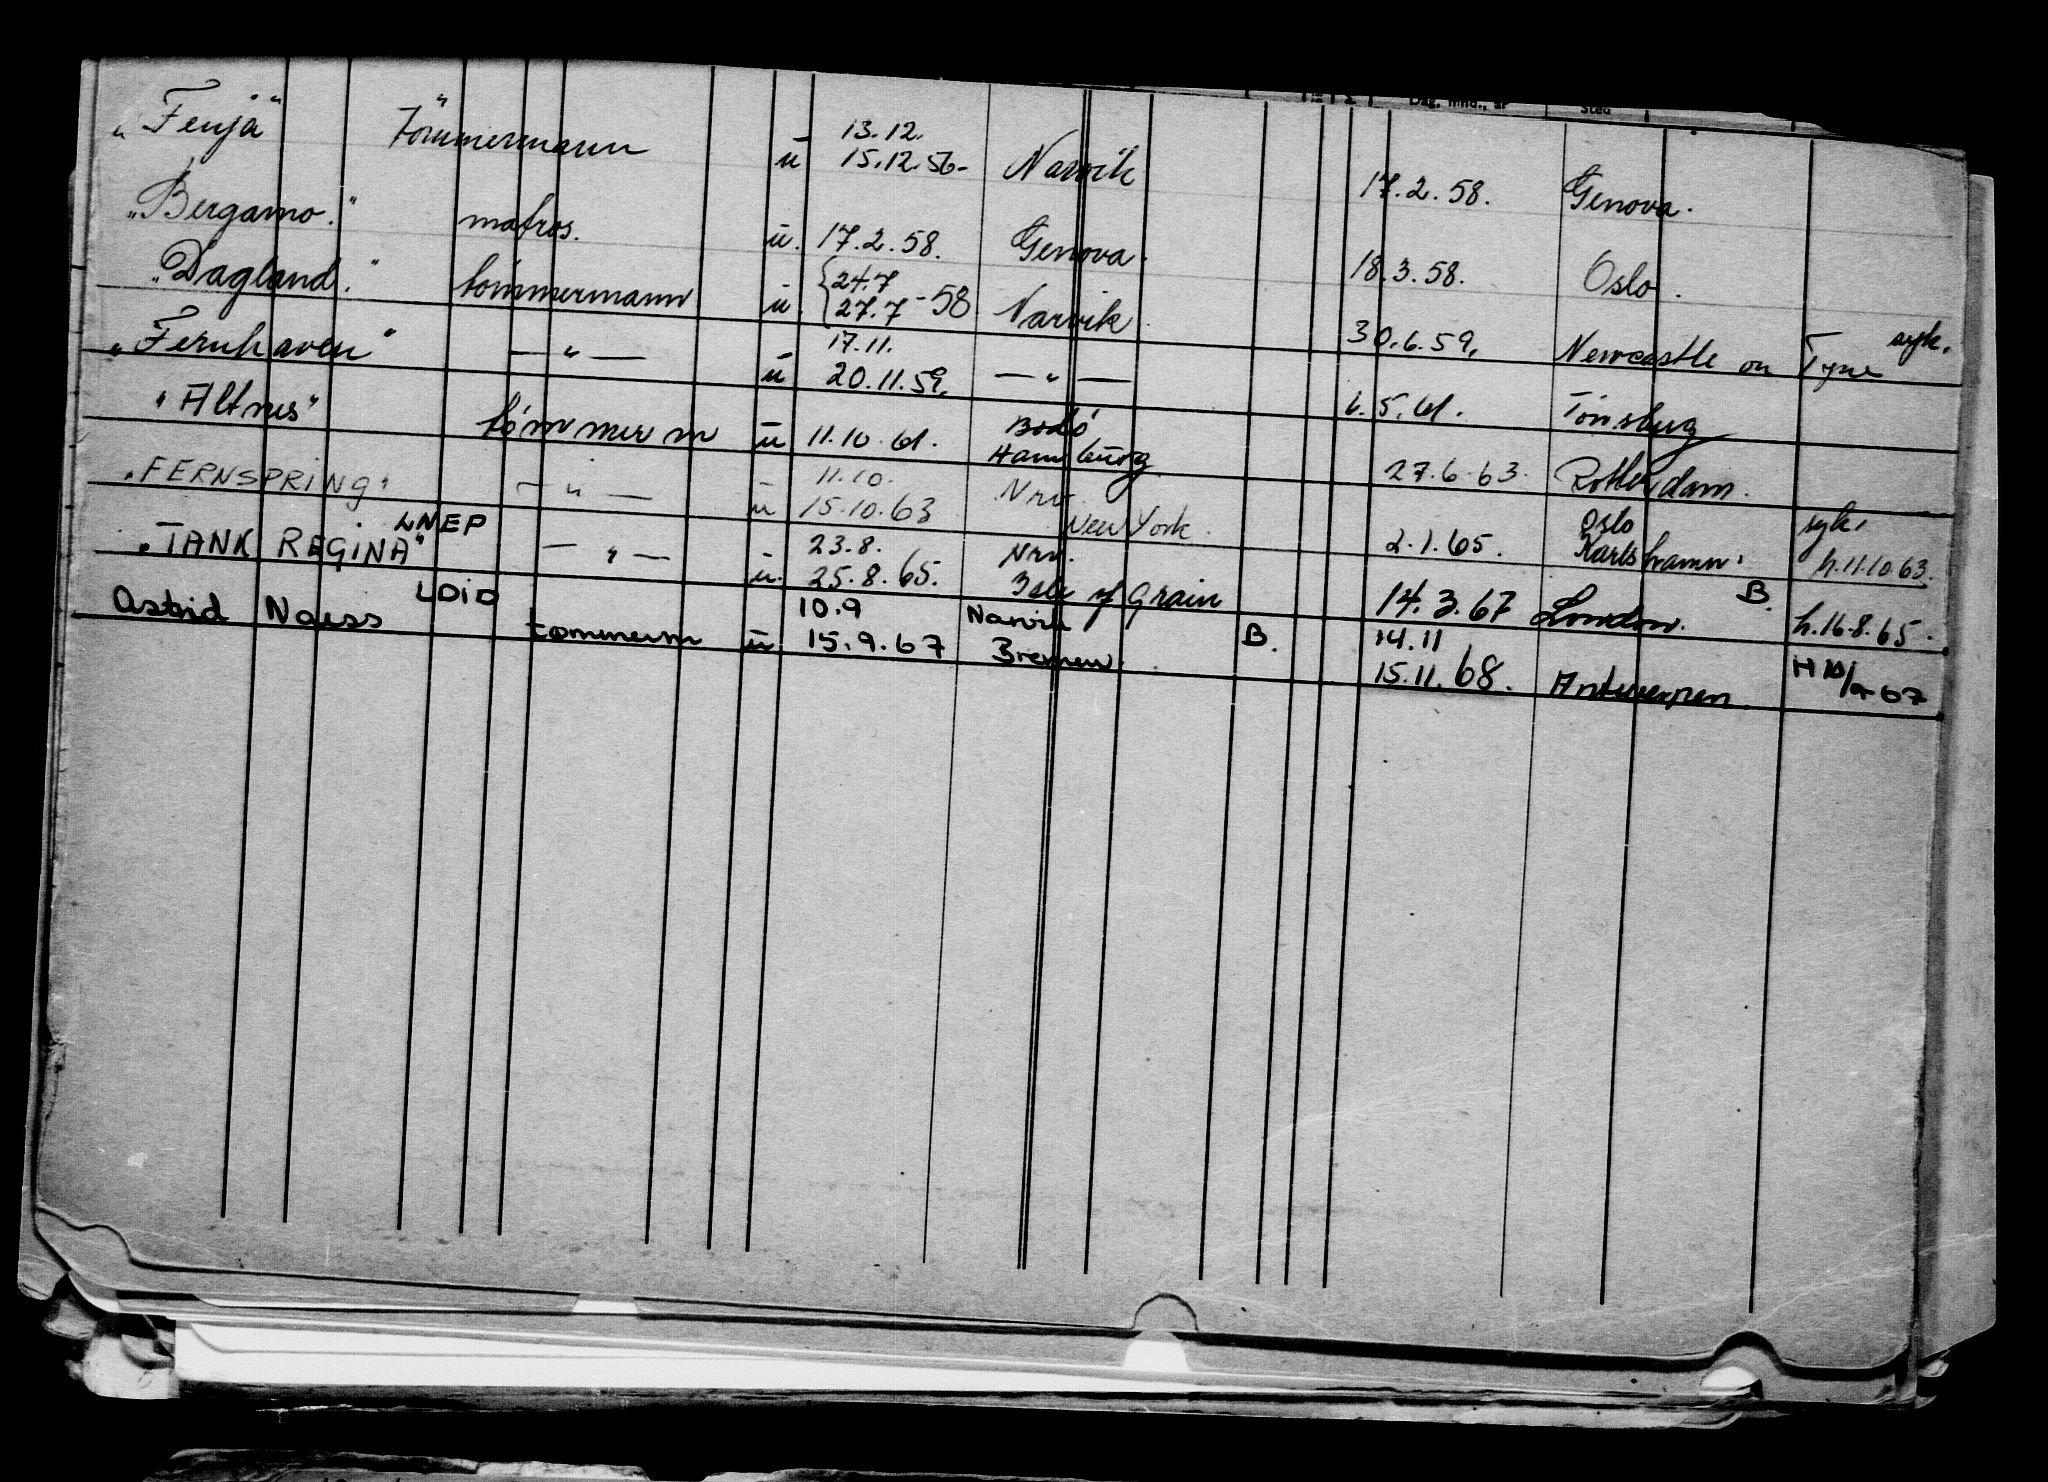 Dag, mnd., år Sted
„Fenja" Tömmermann ū 13.12. 15.12.56- Narvik 17.2.58. Genova.
„Bergamo." matros. ū. 17.2.58. Genova. 18.3.58. Oslo.
„Dagland." tömmermann ū. {24.7 27.7-58 Narvik 30.6.59. Newcastle on Tyne syk.
„Fernhaven" — „ — ū 17.11. 20.11.59. — „ — 6.5.61. Tönsbug
"Altnes" tömmerm ū 11.10.61. Bodö Hamburg 27.6.63. Rotterdam.
„FERNSPRING" — „ — ū 11.10. 15.10.63 Nrv. New York. 2.1.65. Oslo Karlshamn. syk. h.11.10.63.
„TANK REGINA" LNEP — „ — ū. 23.8. 25.8.65. Nrv. Isle of Grain 14.3.67 London. B. h.16.8.65.
Astrid Naess LDID tømmerm ū 10.9 15.9.67 Narvik Bremen. B. 14.11 15.11.68. Antwerpen. H 10/9-67